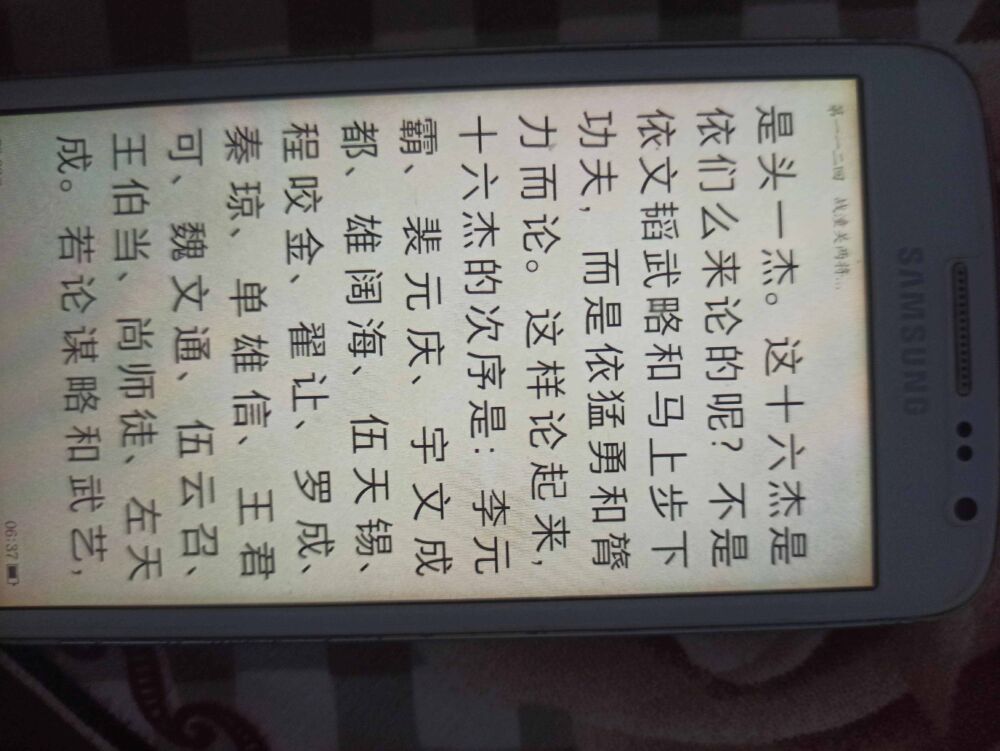 SAMSUNG
第一一二回 战潼关两将...
是头一杰。这十六杰是
依们么来论的呢？不是
依文韬武略和马上步下
功夫，而是依猛勇和膂
力而论。这样论起来，
十六杰的次序是：李元
霸、裴元庆、宇文成
都、雄阔海、伍天锡、
程咬金、翟让、罗成、
秦琼、单雄信、王君
可、魏文通、伍云召、
王伯当、尚师徒、左天
成。若论谋略和武艺，
06:37